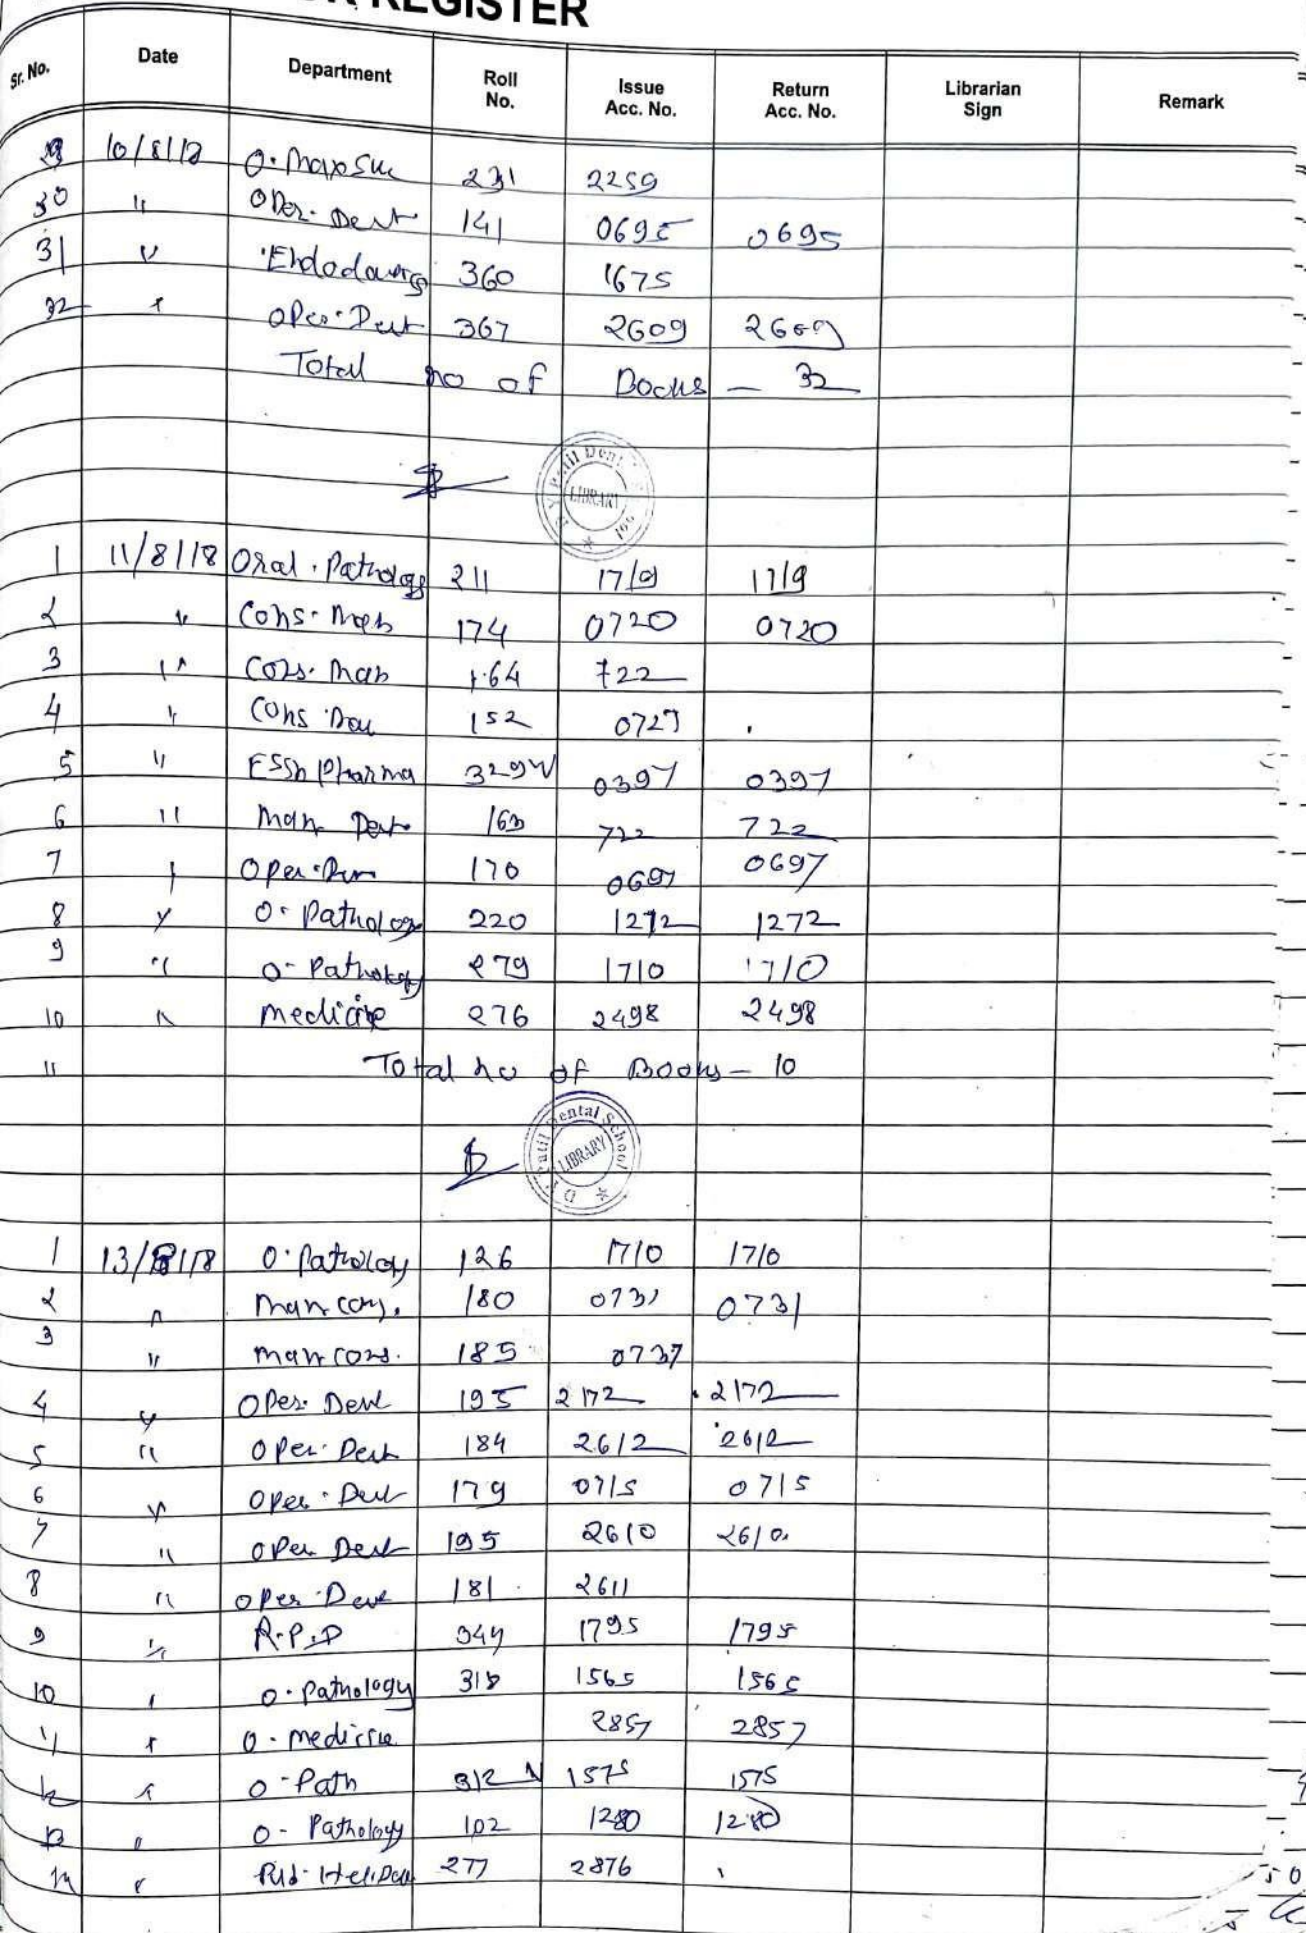 REGISTER
Sr. No. Date Department Roll No. Issue Acc. No. Return Acc. No. Librarian Sign Remark
10/8/18 O. Maxo Su 231 2259
30 " Oper. Dent 141 0695 0695
31 " 360 1675
32 " Oper. Dent 367 2609 2609
Total no of Books - 32
LIBRARY
1 11/8/18 Oral. Pathology 211 1719 1719
2 " Cons. Man 174 0720 0720
3 " Cons. Man 164 722
4 " Cons 152 0723
5 " Essn Pharma 329 0397 0397
6 " Man Dent 163 722 722
7 " Oper. 170 0697 0697
8 " O. Pathology 220 1272 1272
9 " O- Pathology 279 1710 1710
10 " Medicine 276 2498 2498
11 Total no of Books - 10
D Y Patil Dental School LIBRARY
1 13/8/18 O. Pathology 126 1710 1710
2 " Man cons. 180 0731 0731
3 " Man cons. 185 0737
4 " Oper. Dent 195 2172 2172
5 " Oper. Dent 184 2612 2612
6 " Oper. Dent 179 0715 0715
7 " Oper Dent 195 2610 2610
8 " Oper. Dent 181 2611
9 " R.P.D 344 1795 1795
10 " O. Pathology 318 1565 1565
11 " O. Medicine 2857 2857
12 " O-Path 312 1575 1575
13 " O- Pathology 102 1280 1280
14 " 277 2876